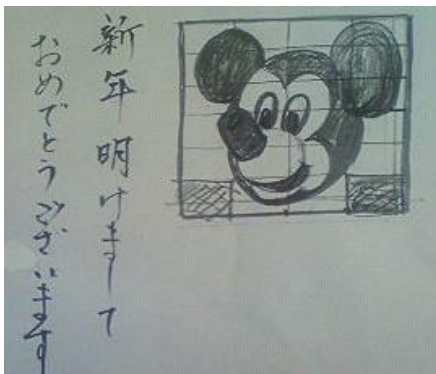 新年明けまして
おめでとうございます